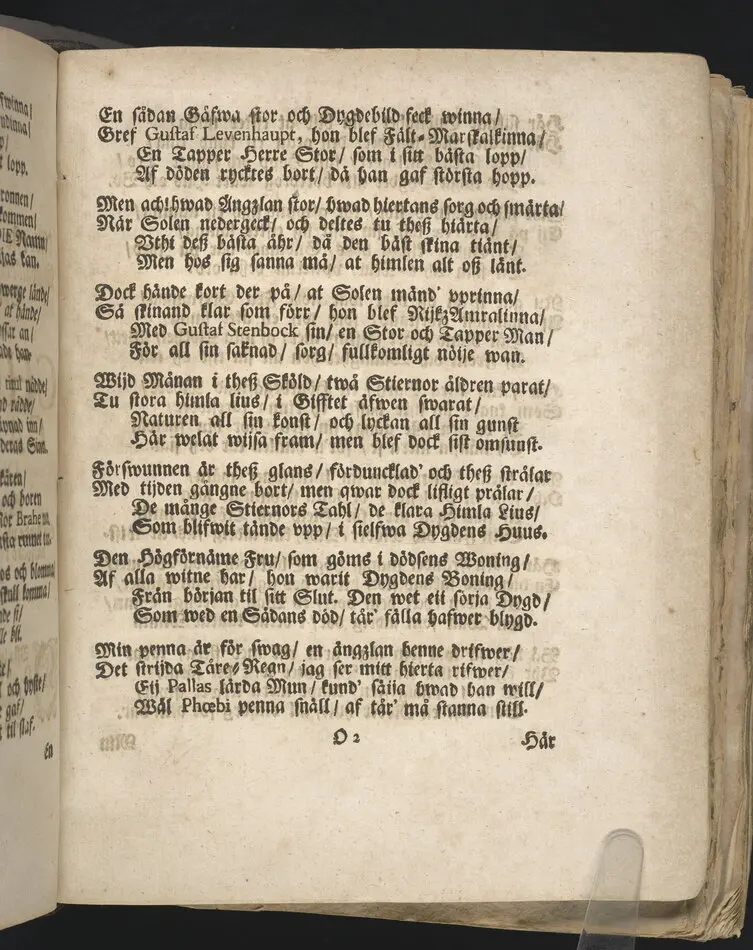 En sådan Gåfwa stor och Dygdebild feck winna/
Gref Gustaf Levenhaupt, hon blef Fält-Marskalkinna/
En Tapper Herre Stor/ som i sitt bästa lopp/
Af döden rycktes bort/ då han gaf största hopp.
Men ach! hwad Ångzlan stor/ hwad hiertans sorg och smärta/
När Solen nedergeck/ och deltes tu theß hiärta/
Vthi deß bästa åhr/ då den bäst skina tiänt/
Men hos sig sanna må/ at himlen alt oß länt.
Dock hände kort der på/ at Solen månd' vprinna/
Så skinand klar som förr/ hon blef RijkzAmralinna/
Med Gustaf Stenbock sin/ en Stor och Tapper Man/
För all sin saknad/ sorg/ fullkomligt nöije wan.
Wijd Månan i theß Sköld/ twå Stiernor äldren parat/
Tu stora himla lius/ i Gifftet äfwen swarat/
Naturen all sin konst/ och lyckan all sin gunst
Här welat wijsa fram/ men blef dock sist omsunst.
Förswunnen är theß glans/ förduncklad' och theß strålar
Med tijden gångne bort/ men qwar dock lifligt prålar/
De månge Stiernors Tahl/ de klara Himla Lius/
Som blifwit tände vpp/ i sielfwa Dygdens Huus.
Den Högförnäme Fru/ som göms i dödsens Woning/
Af alla witne har/ hon warit Dygdens Boning/
Från början til sitt Slut. Den wet eij sörja Dygd/
Som wed en Sådans död/ tår' fälla hafwer blygd.
Min penna är för swag/ en ångzlan henne drifwer/
Det strijda Tåre-Regn/ jag ser mitt hierta rifwer/
Eij Pallas lärda Mun/ kund' säija hwad han will/
Wäl Phœbi penna snäll/ af tår' må stanna still.
O 2
Här